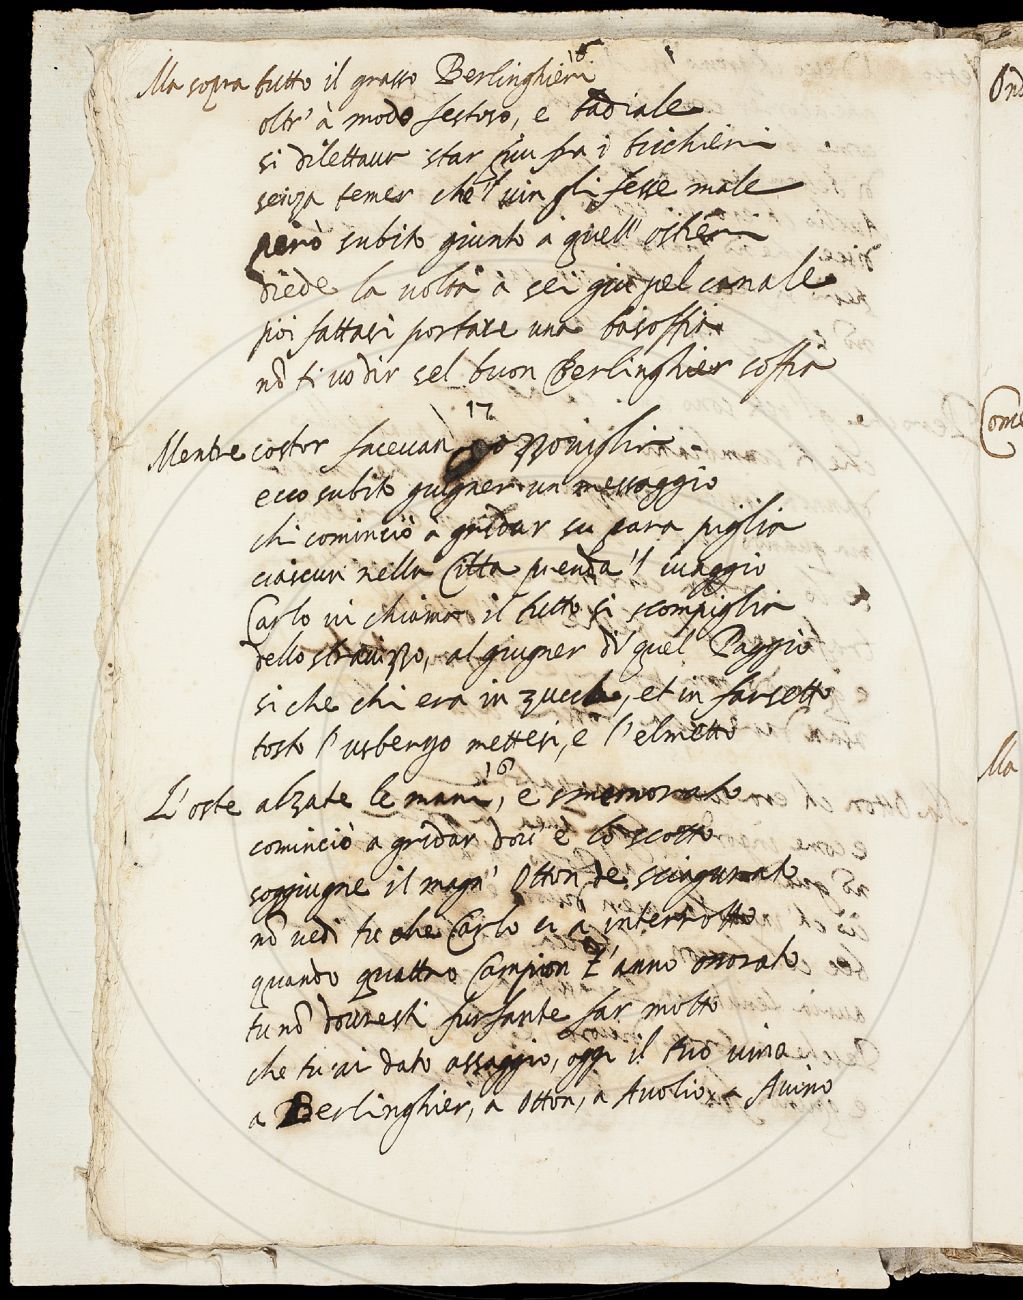 16
Ma sopra tutto il grasso Berlinghieri
oltr' à modo festoso, e badiale
si dilettava star fra i bicchieri
senza temer che 'l vin gli fesse male
però subito giunto à quell' ostieri
diede la volta a sei giù pel canale
poi fattasi portare una basoffia
nō ti vo dir sel buon Berlinghier soffia
17
Mentre costor facevan gozzoviglia
ecco subito giugner un messaggio
chi cominciò à gridar su para piglia
ciascun nella Città prenda 'l viaggio
Carlo vi chiama il tutto si scompiglia
dello stravizzo, al giugner di quel Paggio
si che chi era in zucca, et in farsetto
tosto l'usbergo mettesi, e l'elmetto
18
L'oste alzate le mani, e smemorato
cominciò a gridar dov' è lo scotto
soggiugne il magn' Otton, de sciagurato
nō vedi tu che Carlo ci a interrotto
quando quattro Campion t'anno onorato
tu nō dovresti furfante far motto
che tu ai dato assaggio, oggi il tuo vino
a Berlinghier, a Otton, a Avolio, a Avino
Ond
Come
Ma